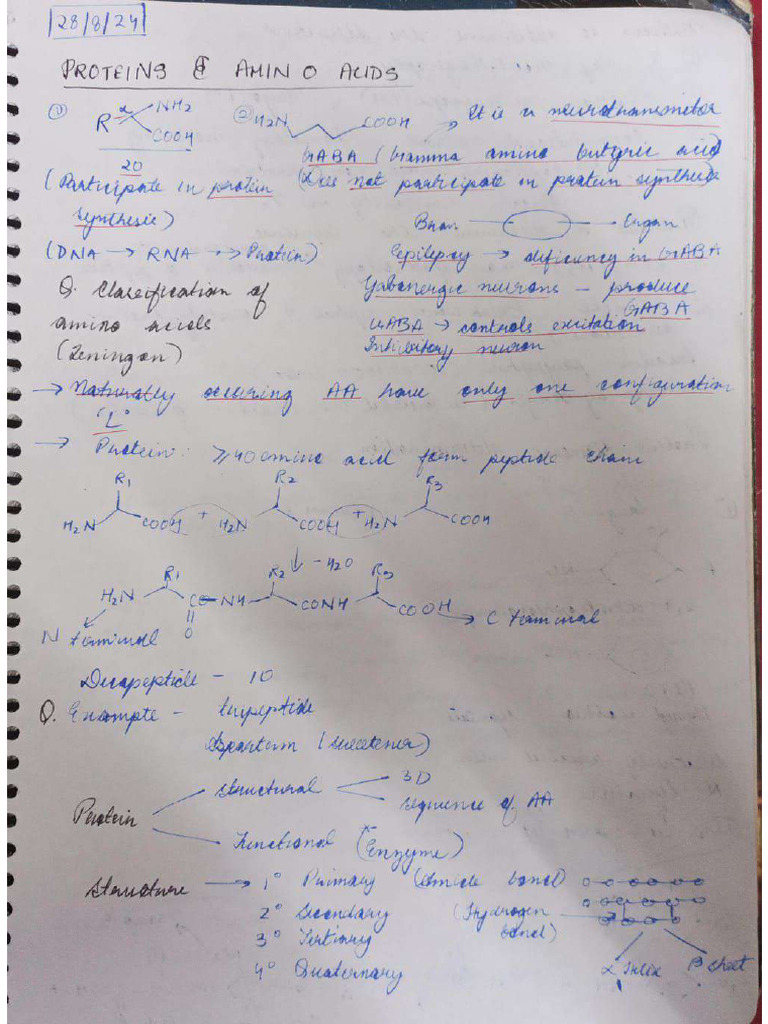 28/8/24
PROTEINS & AMINO ACIDS
① R α NH2 COOH ② H2N COOH → It is a neurotransmetor
20 GABA (Gamma amino butyric acid)
(Participate in protein (Does not participate in protein synthesis
synthesis) Brain Organ
(DNA → RNA → Protein) Epilepsy → deficiency in GABA
Q. Classification of Gabanergic neurons - produce
amino acids GABA
(Leningon) GABA → controls excitation
Inhibitory neuron
→ Naturally occuring AA have only one configuration
"L"
→ Protein: ≥40 amino acid form peptide chain
R1 R2 R3
H2N COOH + H2N COOH + H2N COOH
↓ -H2O
H2N R1 CO-NH R2 CONH R3 COOH → C terminal
O
N terminal
Decapeptide - 10
Q. Example - tripeptide
Aspartem (sweetener)
Protein Structural 3D
sequence of AA
Functional (Enzyme)
Structure → 1° Primary (Amide bond)
2° Secondary (Hydrogen bond)
3° Tertiary
4° Quaternary α Helix β sheet